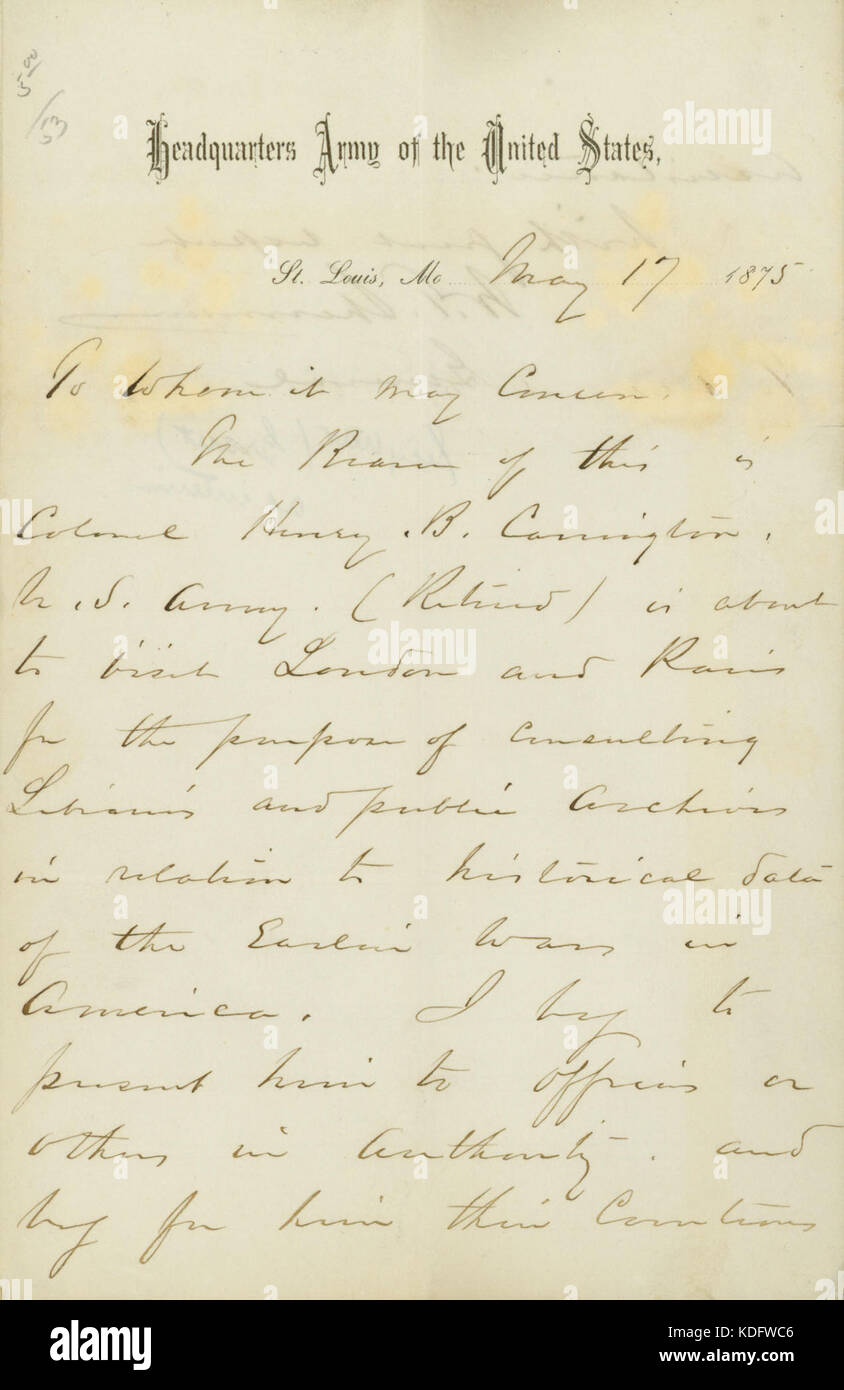 5 00
Headquarters Army of the United States,
St. Louis, Mo May 17 1875
To Whom it may Concern.
The Bearer of this is
Colonel Henry. B. Carrington.
U.S. Army. (Retired) is about
to visit London and Paris
for the purpose of consulting
Libraries and public Archives
in relation to historical data
of the Earlier Wars in
America. I beg to
present him to officers or
others in authority. and
beg for him their Courteous
a
alamy stock photo
KDFWC6
www.alamy.com